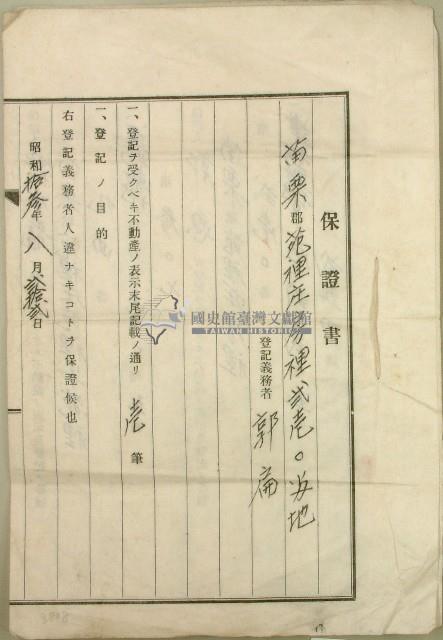 保證書
苗栗郡苑裡庄房裡弍壱〇番地
登記義務者 郭
一、登記ヲ受クベキ不動產ノ表示末尾記載ノ通リ 壱筆
一、登記ノ目的
右登記義務者人違ナキコトヲ保證候也
昭和拾參年八月弍拾弍日
國史館臺灣文獻館
TAIWAN HISTORICA